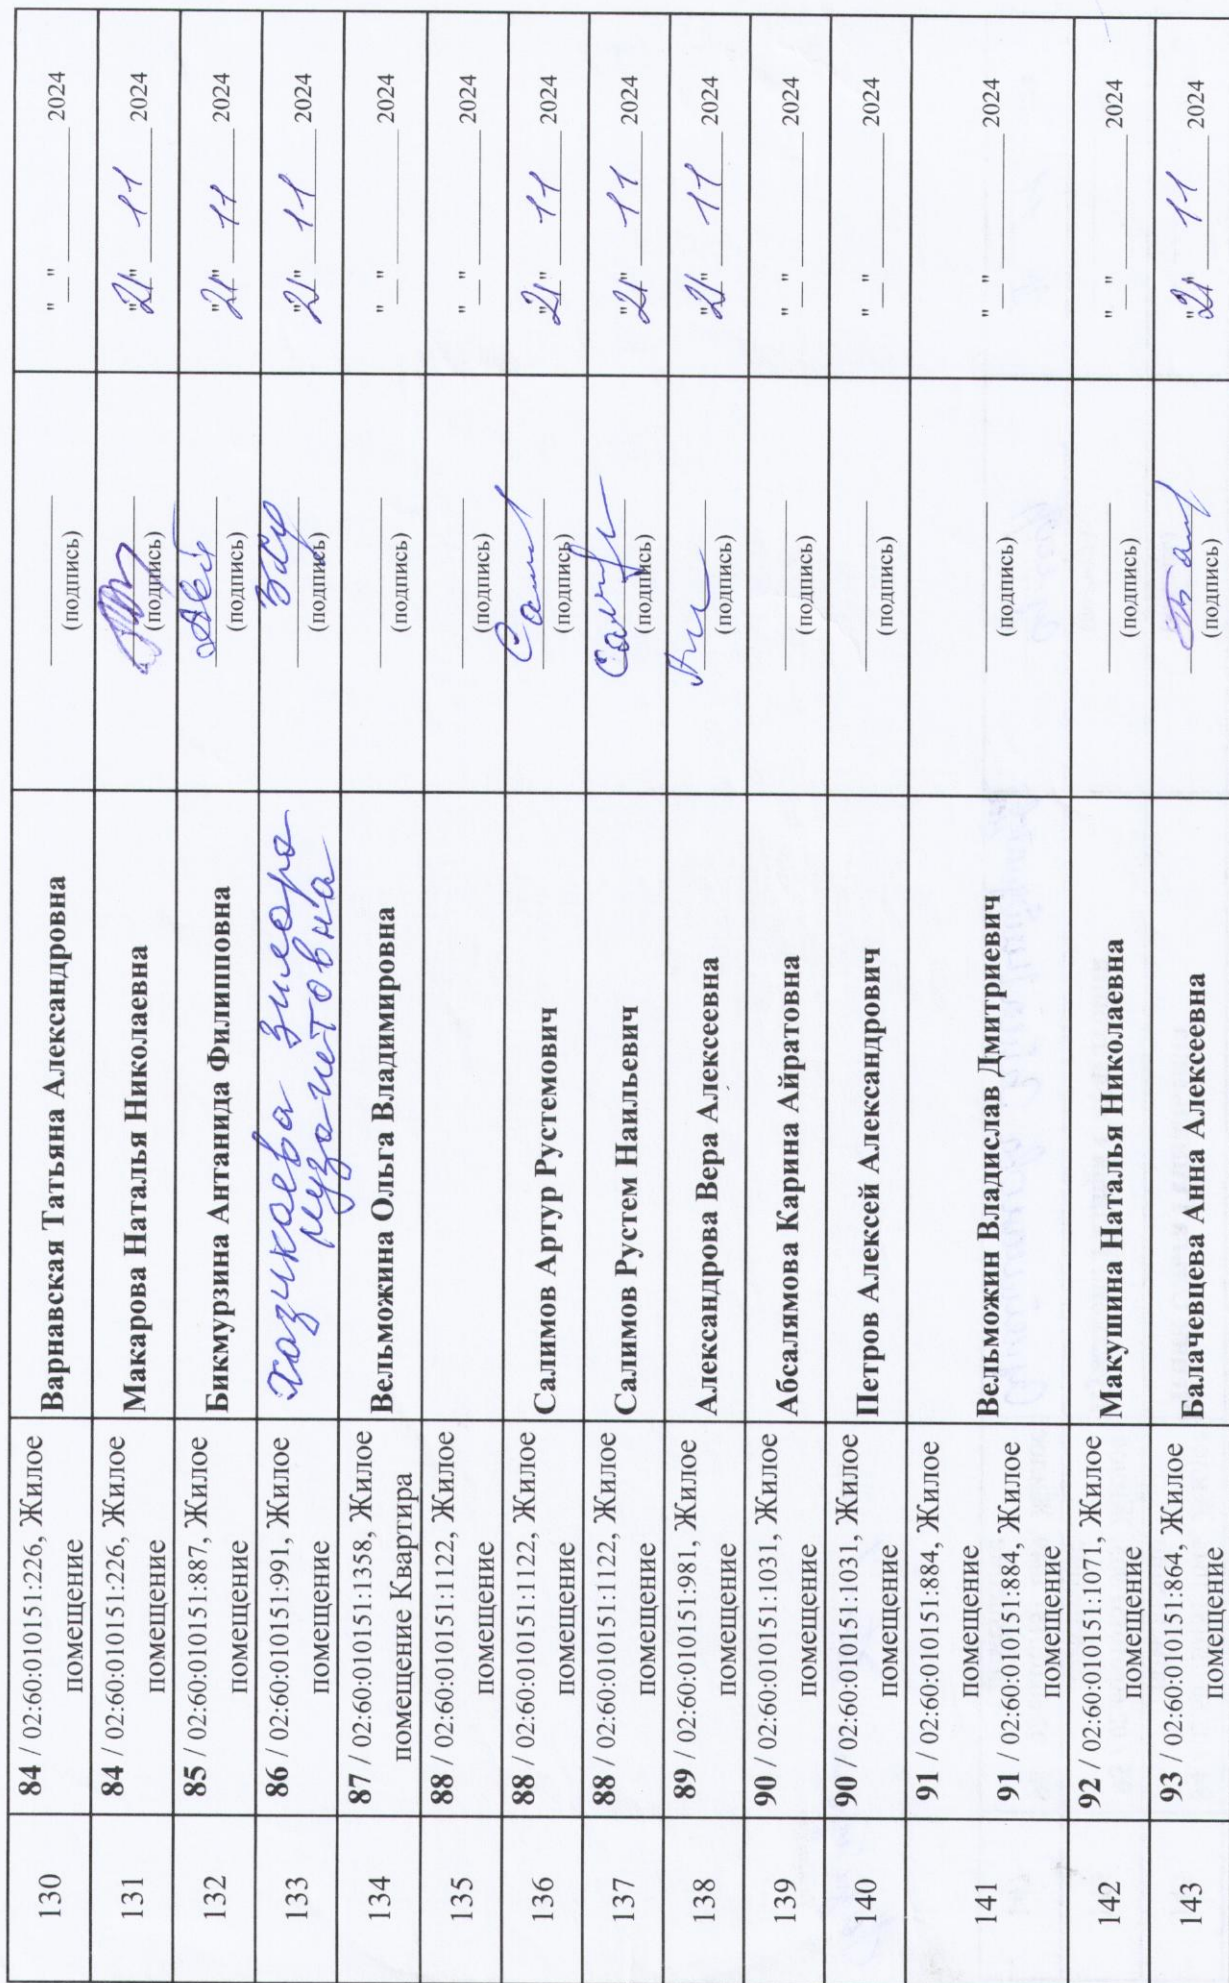 130 84 / 02:60:010151:226, Жилое помещение Варнавская Татьяна Александровна (подпись) "__" ______ 2024
131 84 / 02:60:010151:226, Жилое помещение Макарова Наталья Николаевна (подпись) "21" 11 2024
132 85 / 02:60:010151:887, Жилое помещение Бикмурзина Антанида Филипповна (подпись) "21" 11 2024
133 86 / 02:60:010151:991, Жилое помещение Хазикаева (подпись) "21" 11 2024
134 87 / 02:60:010151:1358, Жилое помещение Квартира Вельможина Ольга Владимировна (подпись) "__" ______ 2024
135 88 / 02:60:010151:1122, Жилое помещение (подпись) "__" ______ 2024
136 88 / 02:60:010151:1122, Жилое помещение Салимов Артур Рустемович (подпись) "21" 11 2024
137 88 / 02:60:010151:1122, Жилое помещение Салимов Рустем Наильевич (подпись) "21" 11 2024
138 89 / 02:60:010151:981, Жилое помещение Александрова Вера Алексеевна (подпись) "21" 11 2024
139 90 / 02:60:010151:1031, Жилое помещение Абсалямова Карина Айратовна (подпись) "__" ______ 2024
140 90 / 02:60:010151:1031, Жилое помещение Петров Алексей Александрович (подпись) "__" ______ 2024
141 91 / 02:60:010151:884, Жилое помещение 91 / 02:60:010151:884, Жилое помещение Вельможин Владислав Дмитриевич (подпись) "__" ______ 2024
142 92 / 02:60:010151:1071, Жилое помещение Макушина Наталья Николаевна (подпись) "__" ______ 2024
143 93 / 02:60:010151:864, Жилое помещение Балачевцева Анна Алексеевна (подпись) "21" 11 2024